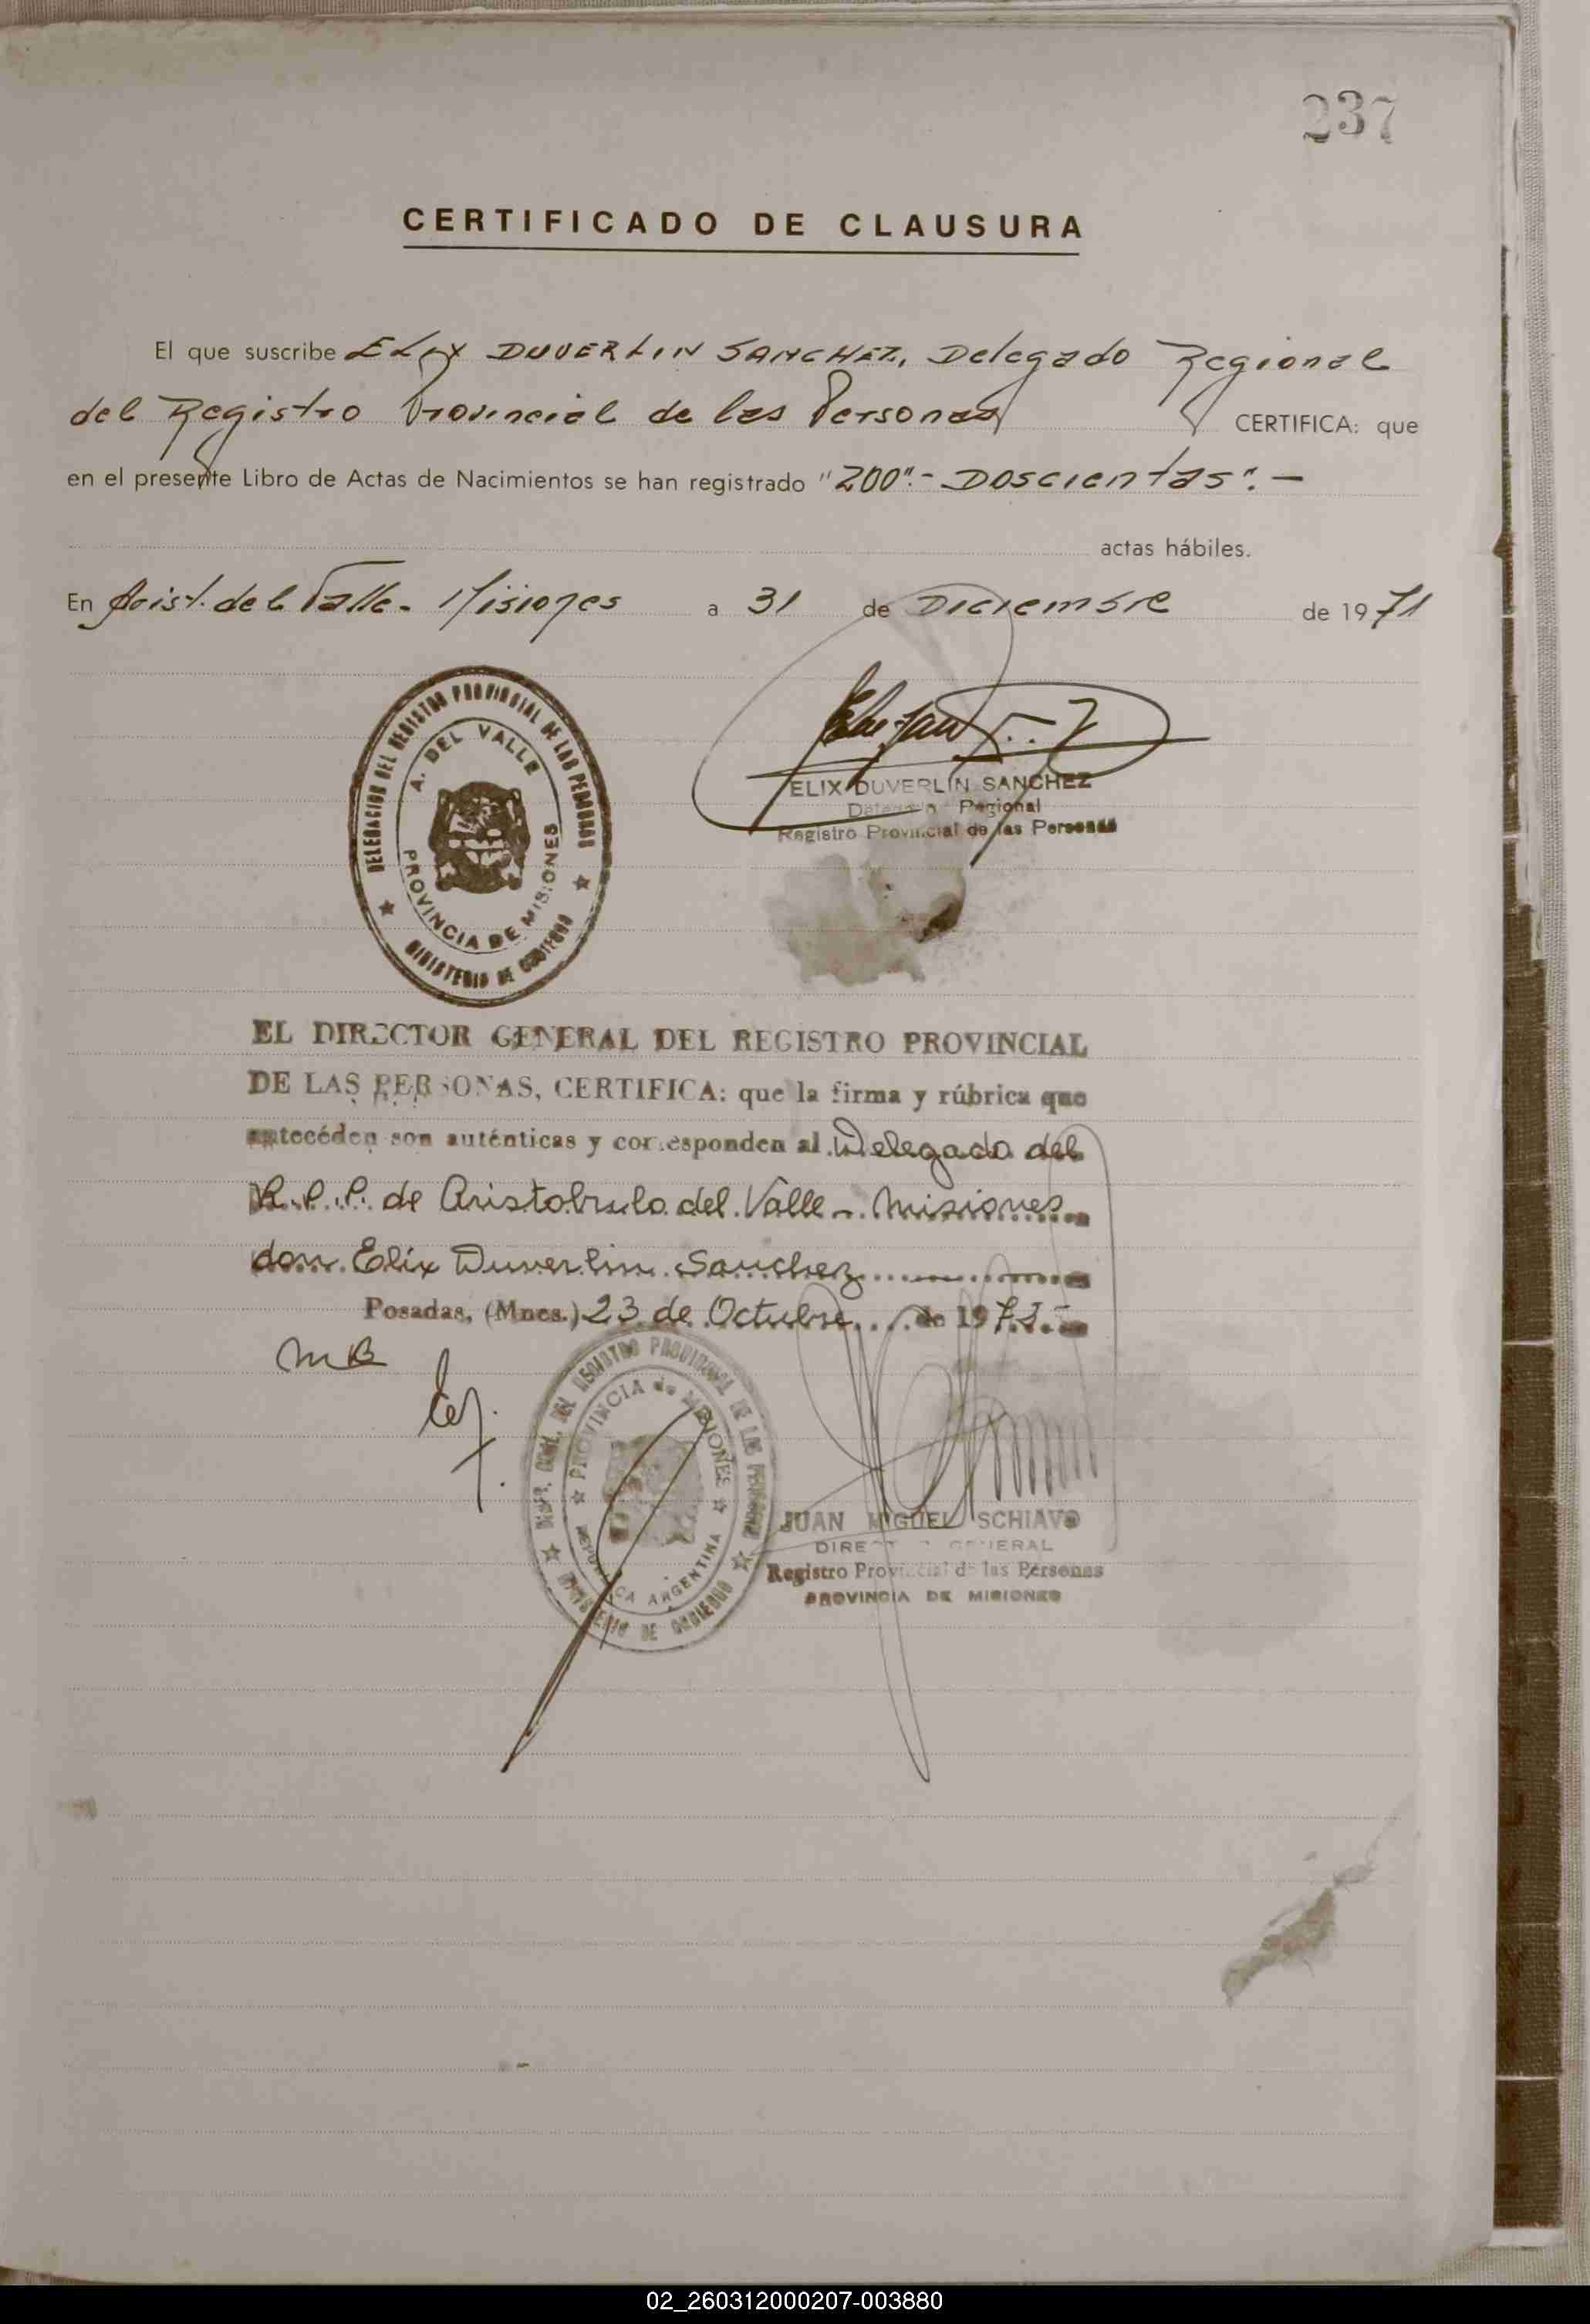 237
CERTIFICADO DE CLAUSURA
El que suscribe ELIX DUVERLIN SANCHEZ, Delegado Regional
del Registro Provincial de las Personas CERTIFICA: que
en el presente Libro de Actas de Nacimientos se han registrado "200".- Doscientas".-
actas hábiles.
En Arist. del Valle - Misiones a 31 de Diciembre de 1971
DELEGACION DEL REGISTRO PROVINCIAL DE LAS PERSONAS
A. DEL VALLE
PROVINCIA DE MISIONES
MINISTERIO DE GOBIERNO
ELIX DUVERLIN SANCHEZ
Delegado Regional
Registro Provincial de las Personas
EL DIRECTOR GENERAL DEL REGISTRO PROVINCIAL
DE LAS PERSONAS, CERTIFICA: que la firma y rúbrica que
antecéden son auténticas y corresponden al Delegado del
R.P.P. de Aristobulo del Valle - Misiones
don Elix Duverlin Sanchez
Posadas, (Mnes.) 23 de Octubre de 197
MB
DIRECC. GRAL. DEL REGISTRO PROVINCIAL DE LAS PERSONAS
PROVINCIA de MISIONES
REPUBLICA ARGENTINA
MINISTERIO DE GOBIERNO
JUAN MIGUEL SCHIAVO
DIRECTOR GENERAL
Registro Provincial de las Personas
PROVINCIA DE MISIONES
02_260312000207-003880